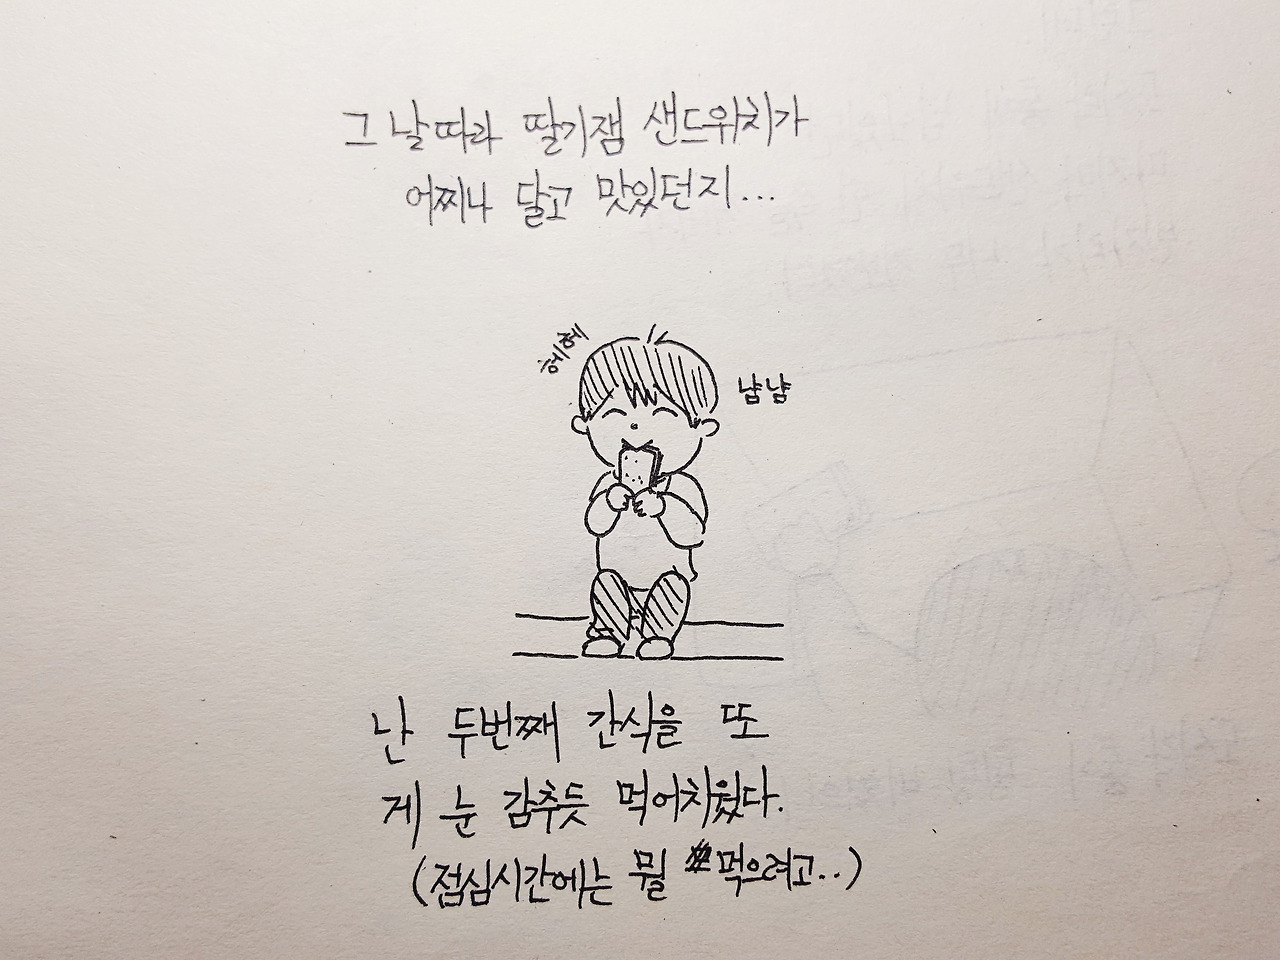 그 날따라 딸기잼 샌드위치가
어찌나 달고 맛있던지...
헤헤
냠냠
난 두번째 간식을 또
게 눈 감추듯 먹어치웠다.
(점심시간에는 뭘 먹으려고..)